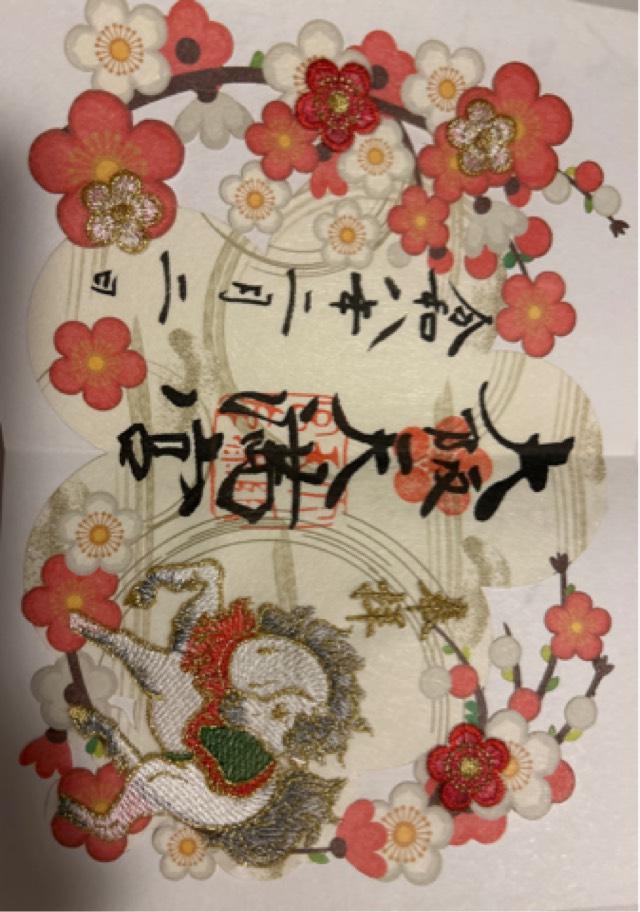 奉拝
大阪天満宮
令和八年二月二日